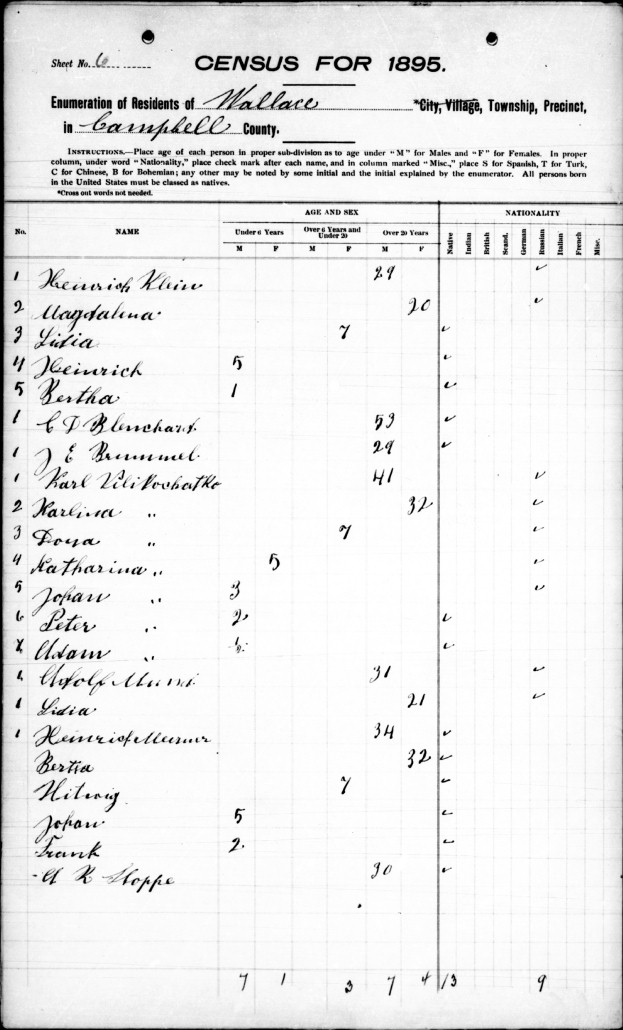 Sheet No. 6
CENSUS FOR 1895.
Enumeration of Residents of Wallace *City, Village, Township, Precinct,
in Campbell County.
INSTRUCTIONS.—Place age of each person in proper sub-division as to age under "M" for Males and "F" for Females. In proper
column, under word "Nationality," place check mark after each name, and in column marked "Misc.," place S for Spanish, T for Turk,
C for Chinese, B for Bohemian; any other may be noted by some initial and the initial explained by the enumerator. All persons born
in the United States must be classed as natives.
*Cross out words not needed.
AGE AND SEX NATIONALITY
No. NAME Under 6 Years Over 6 Years and Under 20 Over 20 Years
M F M F M F Native Indian British Scand. German Russian Italian French Misc.
1 Heinrich Klein 29 ✓
2 Magdalena 20 ✓
3 Lidia 7 ✓
4 Heinrich 5 ✓
5 Bertha 1 ✓
1 C D Blenchard 53 ✓
1 J E Brummel 29 ✓
1 Karl 41 ✓
2 Karlina " 32 ✓
3 " 7 ✓
4 Katharina " 5 ✓
5 Johan " 3 ✓
6 Peter " 2 ✓
Adam " ✓
Adolf 31 ✓
1 Lidia 21 ✓
1 Heinrich 34 ✓
Bertha 32 ✓
Hitwig 7 ✓
Johan 5 ✓
Frank 2 ✓
A R Hoppe 30 ✓
7 1 3 7 4 13 9